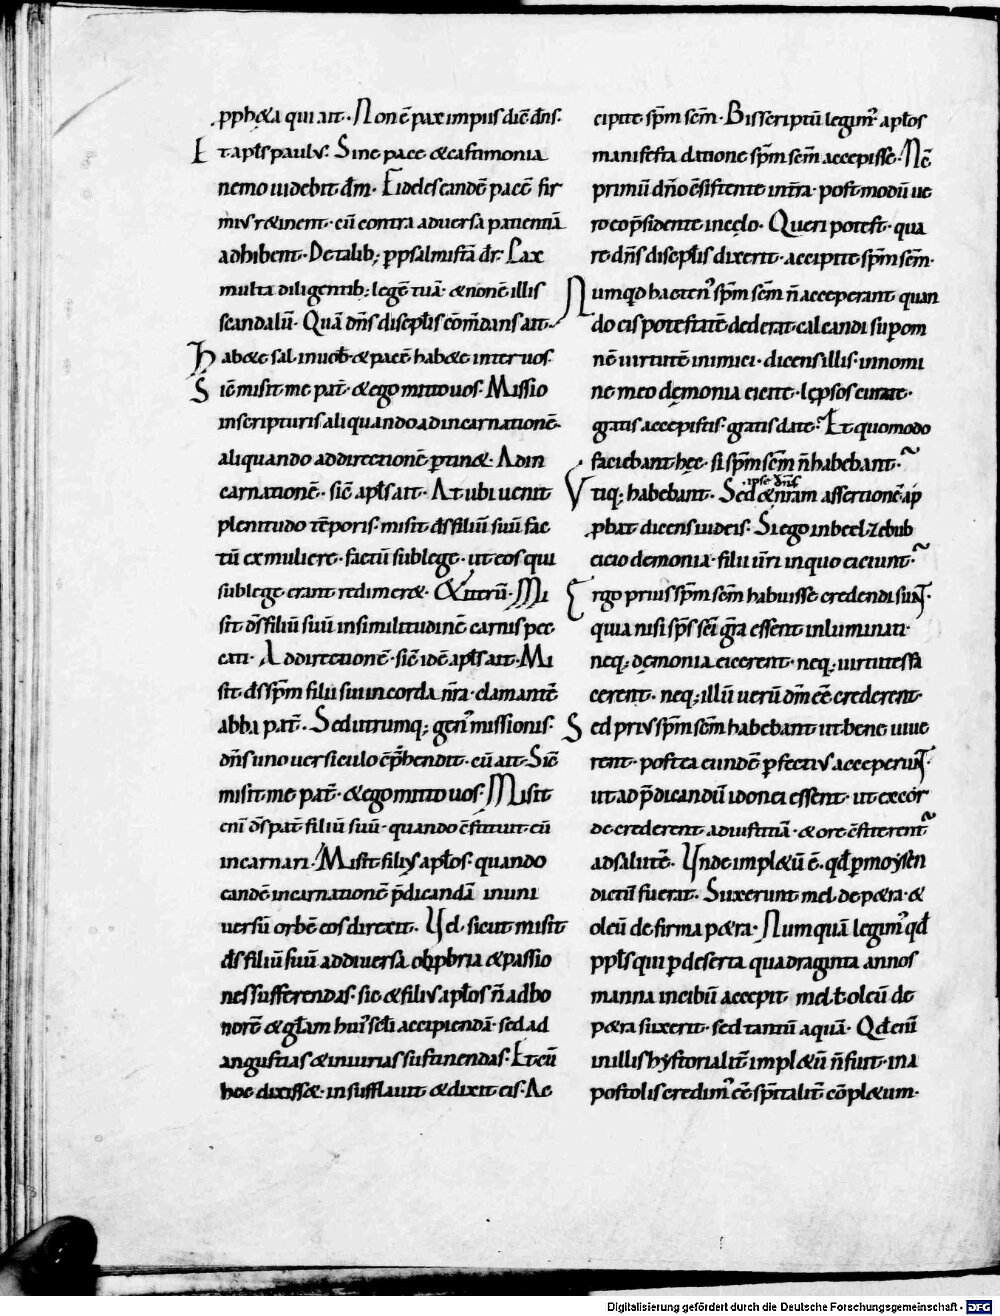 ppħ&a qui ait· Non ē pax impiis dič dñs·
Et apl̃s paulus· Sine pace & castimonia
nemo uidebit dm̃· Eidē lescandē pacē fir
mius r&inent· cū contra aduersa patientiā
adhibent· De talib; p̱ psalmistā dr̃· Pax
multa diligentib; legē tuā· & non ē illis
scandalū· Quā dñs discipl̃is cōm̃dans ait·
Hab&e sal in uob̃ & pacē hab&e inter uos·
Sič misit me pat̃· & ego mitto uos· Missio
in scripturis aliquando ad incarnationē·
aliquando ad directionē p̱tin&· Ad in
carnationē· sič apl̃s ait· At ubi uenit
plenitudo tēporis· misit d̃s filiū suū fac
tū ex muliere· factū sub lege· ut eos qui
sub lege erant redimer&· & iterū· Mi
sit d̃s filiū suū in similitudinē carnis pec
cati· Ad directionē· sič idē apl̃s ait· Mi
sit d̃s sp̃m filii sui in corda nr̃a· clamantē
abba pat̃· Sed utrumq; gen᾽ missionis·
dñs uno uersiculo cōp̃hendit· cū ait· Sič
misit me pat̃· & ego mitto uos· Misit
eni d̃s pat̃ filiū suū· quando cōstituit eū
incarnari· Misit filius apl̃os· quando
eandē incarnationē p̃dicandā in uni
uersū orbē eos direxit· Vel sicut misit
d̃s filiū suū ad diuersa obp̱bria & passio
nes sufferendas· sic & filius apl̃os ñ ad ho
norē & gl̃am hui᾽ sc̃li accipiendā· sed ad
angustias & iniurias sustinendas· Et cū
hoc dixiss&· insufflauit & dixit eis· Ac
cipite sp̃m sc̃m· Bis scriptū legim᾽ apl̃os
manifesta datione sp̃m sc̃m accepisse· Nē
primū dño cōsistente in tr̃a· postmodū ue
ro cōp̃sidente in cęlo· Queri potest· qua
re dñs discipl̃is dixerit· accipite sp̃m sc̃m·
Numqd hacten᾽ sp̃m sc̃m ñ acceperant quan
do eis potestatē dederat calcandi sup̱ om
nē uirtutē inimici· dicens illis· in nomi
ne meo dęmonia eicite· lęprosos curate·
gratis accepistis· gratis date· Et quomodo
faciebant hęc· si sp̃m sc̃m ñ habebant·
Vtiq; habebant· Sed & nr̃am assertionē ap
ipse dñs
p̱bat dicens iudeis· Si ego in beelzebub
eicio demonia· filii ur̃i in quo eiciunt·
Ergo prius sp̃m sc̃m habuisse credendi sunt·
quia nisi sp̃s sc̃i gr̃a essent inluminati·
neq; dęmonia eicerent· neq; uirtutes fa
cerent· neq; illū uerū dm̃ ēē crederent·
Sed prius sp̃m sc̃m habebant ut bene uiue
rent· postea eundē p̱fectius acceperunt·
ut ad p̃dicandū idonei essent· ut ex cor
de crederent ad iustitiā· & ore cōfiterent᾽
ad salutē· Vnde impl&ū ē· qd p̱ moysen
dictū fuerat· Suxerunt mel de p&ra· &
oleū de firma p&ra· Numquā legim᾽ qd
ppl̃s qui p̱ deserta quadraginta annos
manna in cibū accepit· mel ł oleū de
p&ra suxerit· sed tantū aquā· Qd eni
in illis hystorialit̃ impl&ū ñ fuit· in a
postolis credim᾽ ēē sp̃italit̃ cōpl&um·
Digitalisierung gefördert durch die Deutsche Forschungsgemeinschaft · DFG